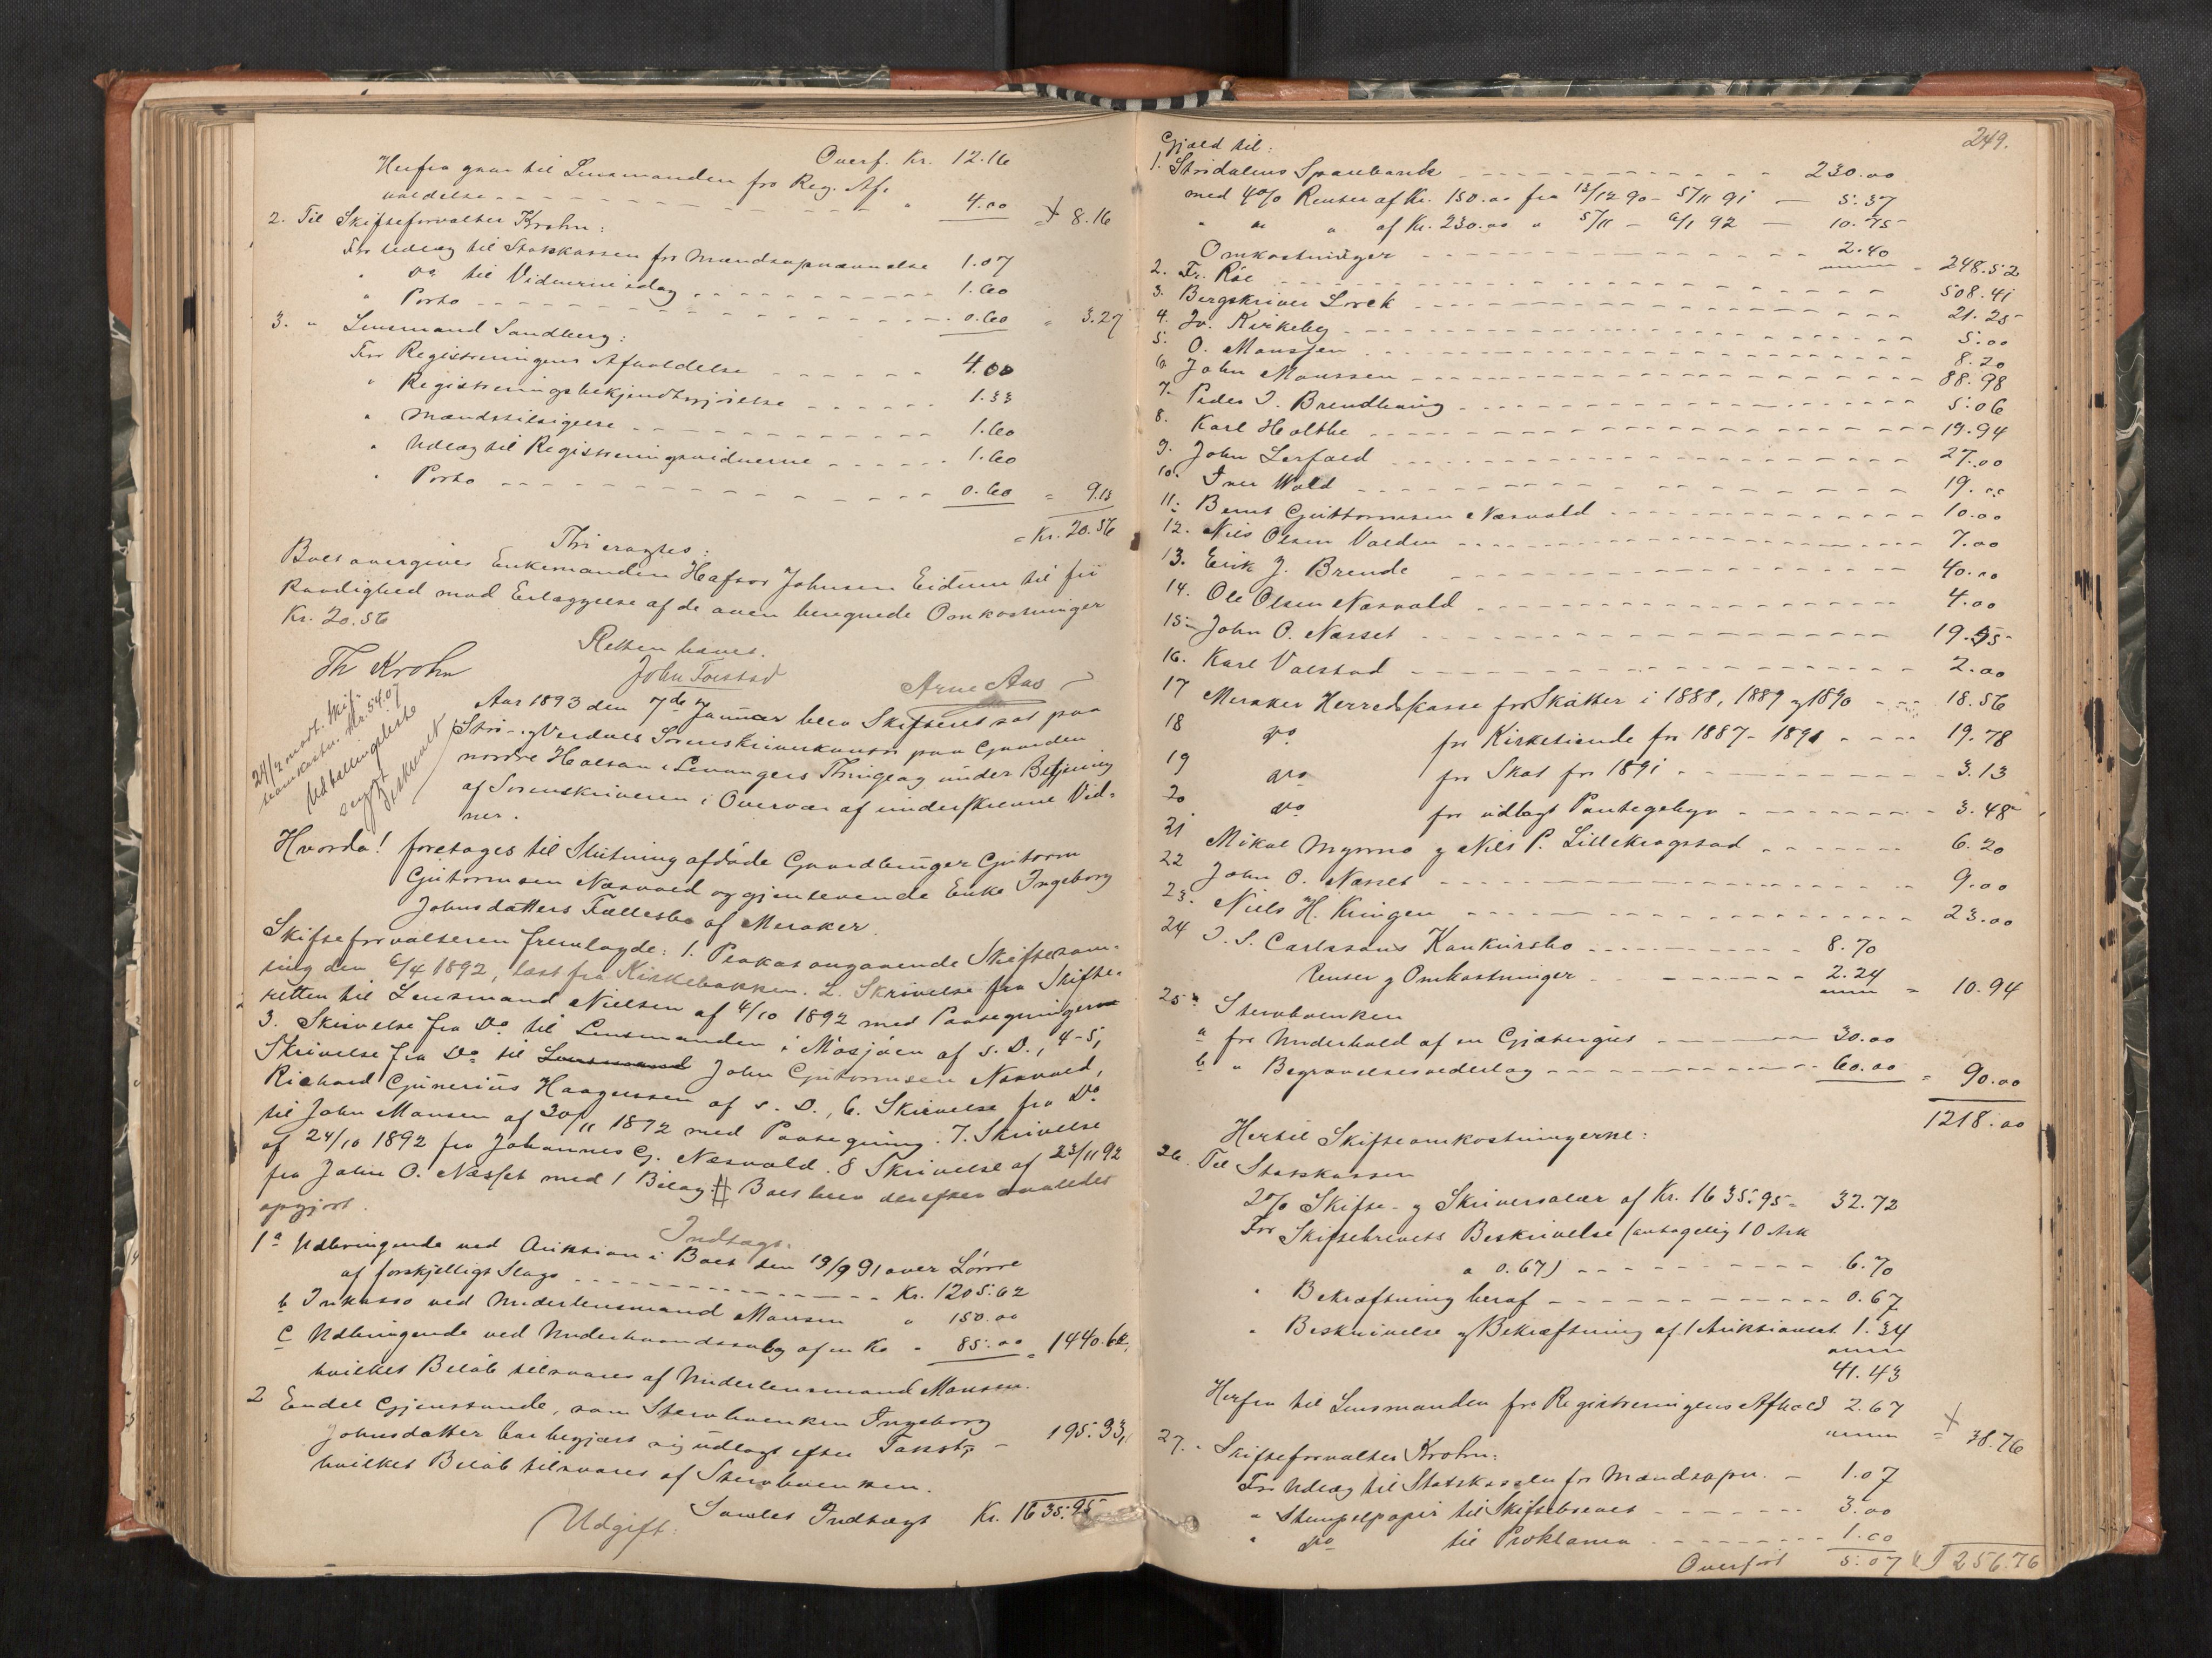 Overf. Kr. 12.16
Herfra gaar til Lensmanden for Reg. Af-
holdelse " 4.00 ⨯ 8.16
2. Til Skifteforvalter Krohn:
For Udlæg til Statskassen for Mandsopnævnelse 1.07
" Do til Vidnerne idag 1.60
" Porto 0.60 " 3.27
3. " Lensmand Sandberg:
For Registreringens Afholdelse 4.00
" Registreringsbekjendtgjörelse 1.33
" Mandstilsigelse 1.60
" Udlæg til Registreringsvidnerne 1.60
" Porto 0.60 = 9.13
= Kr. 20.56
Thi eragtes:
Boet overgives Enkemanden Hafsor Johnsen Eidum til fri
Raadighed mod Erlæggelse af de oven beregnede Omkostninger
Kr. 20.56
Retten hævet.
Th Krohn John Forstad Arne Aas
24/2 modt. Skif-
teomkostn. Kr. 54.07
Udhallingsliste
Aar 1893 den 7de Januar blev Skifteret sat paa
Stör- og Verdals Sorenskriverkontor paa Gaarden
nordre Halsan i Levangers Thinglag under Betjening
af Sorenskriveren i Overvær af underskrevne Vid-
ner.
Hvorda! foretoges til Slutning afdöde Gaardbruger Gutorm
Gutormsen Næsvold og gjenlevende Enke Ingeborg
Johnsdatters Fællesbo af Meraker.
Skifteforvalteren fremlagde: 1. Plakat angaaende Skiftesam-
ling den 6/4 1892, læst fra Kirkebakken. 2. Skrivelse fra Skifte-
retten til Lensmand Nielsen af 4/10 1892 med Paategninger
3. Skrivelse fra Do til Lensmanden i Mosjöen af s. D., 4-5,
Skrivelse fra Do til Lensmand John Gutormsen Næsvold,
Richard Gunerius Haagensen af s. D., 6. Skrivelse fra Do
til John Mansen af 30/11 1892 med Paategning. 7. Skrivelse
af 24/10 1892 fra Johannes G. Næsvold. 8 Skrivelse af 23/11 92
fra John O. Næsset med 1 Bilag. Boet blev derefter saaledes
opgjort.
Indtægt.
1 a Udbringende ved Auktion i Boet den 19/9 91 over Lösöre
af forskjelligt Slags Kr. 1205.62
b Inkasso ved Underlensmand Mansen " 150.00
c Udbringende ved Underhaandssalg af en Ko " 85.00 = 1440.62,
hvilket Belöb tilsvares af Underlensmand Mansen.
2 Endel Gjenstande, som Stervboenken Ingeborg
Johnsdatter har begjært sig udlagt efter Taxt, - 195.33,
hvilket Belöb tilsvares af Stervboenken.
Samlet Indtægt Kr. 1635.95
Udgift:
249.
Gjæld til:
1. Stördalens Sparebank 230.00
med 4% Renter af Kr. 150.00 fra 13/12 90 - 5/11 91 - 5.37
" " " af Kr. 230.00 " 5/11 - 6/1 92 - 10.75
Omkostninger 2.40 = 248.52
2. Fr. Röe 508.41
3. Bergskriver Lorck 21.25
4. Jo. Kirkeby 5.00
5. O. Mansjen 8.20
6. John Manssen 88.98
7. Peder J. Brendhaug 5.06
8. Karl Holthe 19.94
9. John Lerfald 27.00
10. Iver Wold 19.00
11. Bernt Guttormsen Næsvold 10.00
12. Nils Olsen Volden 7.00
13. Erik J. Brende 40.00
14. Ole Olsen Næsvold 4.00
15 John O. Næsset 19.55
16. Karl Volstad 2.00
17 Meraker Herredskasse for Skatter i 1888, 1889 og 1890 18.56
18 Do for Kirketiende for 1887-1891 19.78
19 Do for Skat for 1891 3.13
20 Do for udlagt Pantegebyr 3.48
21 Mikal Myrmo og Nils P. Lillekragstad 6.20
22 John O. Næsset 9.00
23. Niels H. Kringen 23.00
24 J. S. Carlssons Konkursbo 8.70
Renter og Omkostninger 2.24 = 10.94
25. Stervboenken
a for Underhold af en Gjætergut 30.00
b " Begravelsesvederlag 60.00 = 90.00
1218.00
Hertil Skifteomkostningerne:
26. Til Statskassen
2% Skifte- og Skriversalær af Kr. 1635.95 = 32.72
For Skiftebrevets Beskrivelse (antagelig 10 Ark
a 0.67) 6.70
" Bekræftning heraf 0.67
" Beskrivelse og Bekræftning af 1 Auktionsct. 1.34
41.43
Herfra til Lensmanden for Registreringens Afhold 2.67
⨯ = 38.76
27. " Skifteforvalter Krohn:
For Udlæg til Statskassen for Mandsopn. - 1.07
" Stempelpapir til Skiftebrevet 3.00
" Do til Proklama 1.00
Overfört 5.07 1256.76